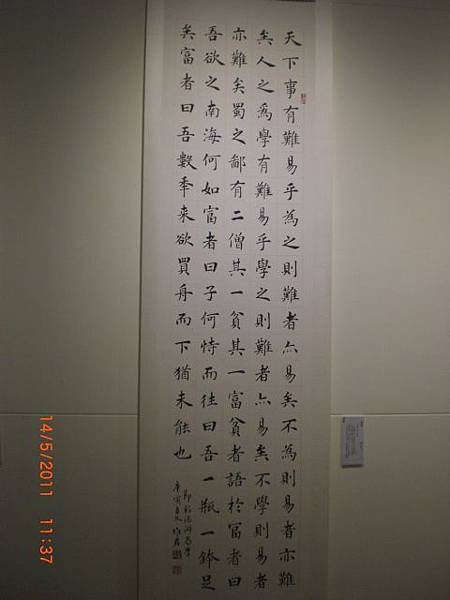 天下事有難易乎為之則難者亦易矣不為則易者亦難
矣人之為學有難易乎學之則難者亦易矣不學則易者
亦難矣蜀之鄙有二僧其一貧其一富貧者語於富者曰
吾欲之南海何如富者曰子何恃而往曰吾一瓶一鉢足
矣富者曰吾數秊来欲買舟而下猶未能也
節彭端淑為學
庚寅
14/5/2011 11:37